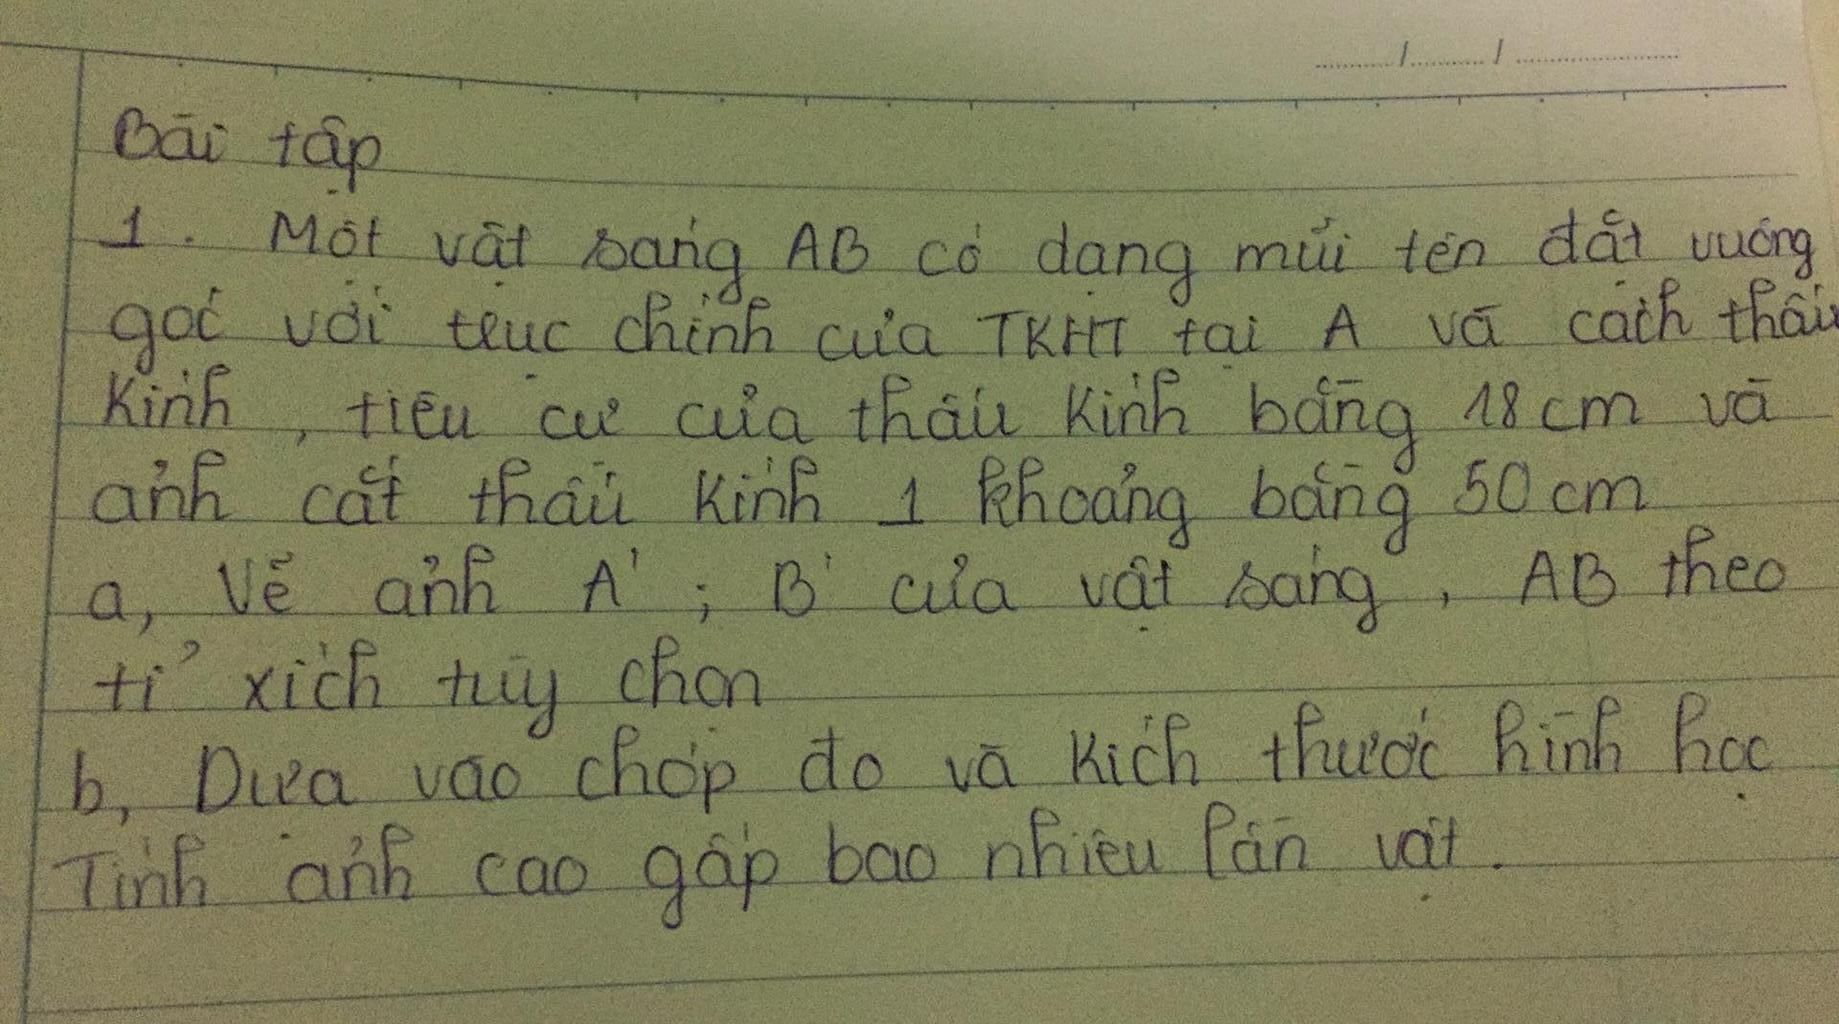 Bài tập
1. Một vật sáng AB có dạng mũi tên đặt vuông
góc với trục chính của TKHT tại A và cách thấu
Kính, tiêu cự của thấu Kính bằng 18 cm và
ảnh cắt thấu Kính 1 khoảng bằng 50 cm
a, Vẽ ảnh A' ; B' của vật sáng, AB theo
tỉ xích tùy chọn
b, Dựa vào chóp đo và Kích thước hình học
Tính ảnh cao gấp bao nhiêu lần vật.